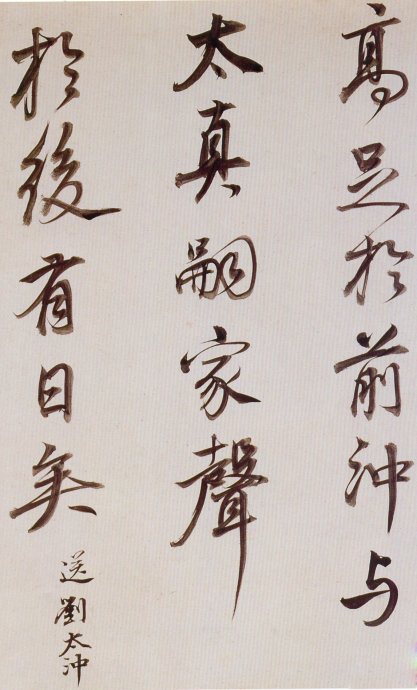 高足於前沖与
太真嗣家聲
於後有日矣
送劉太沖